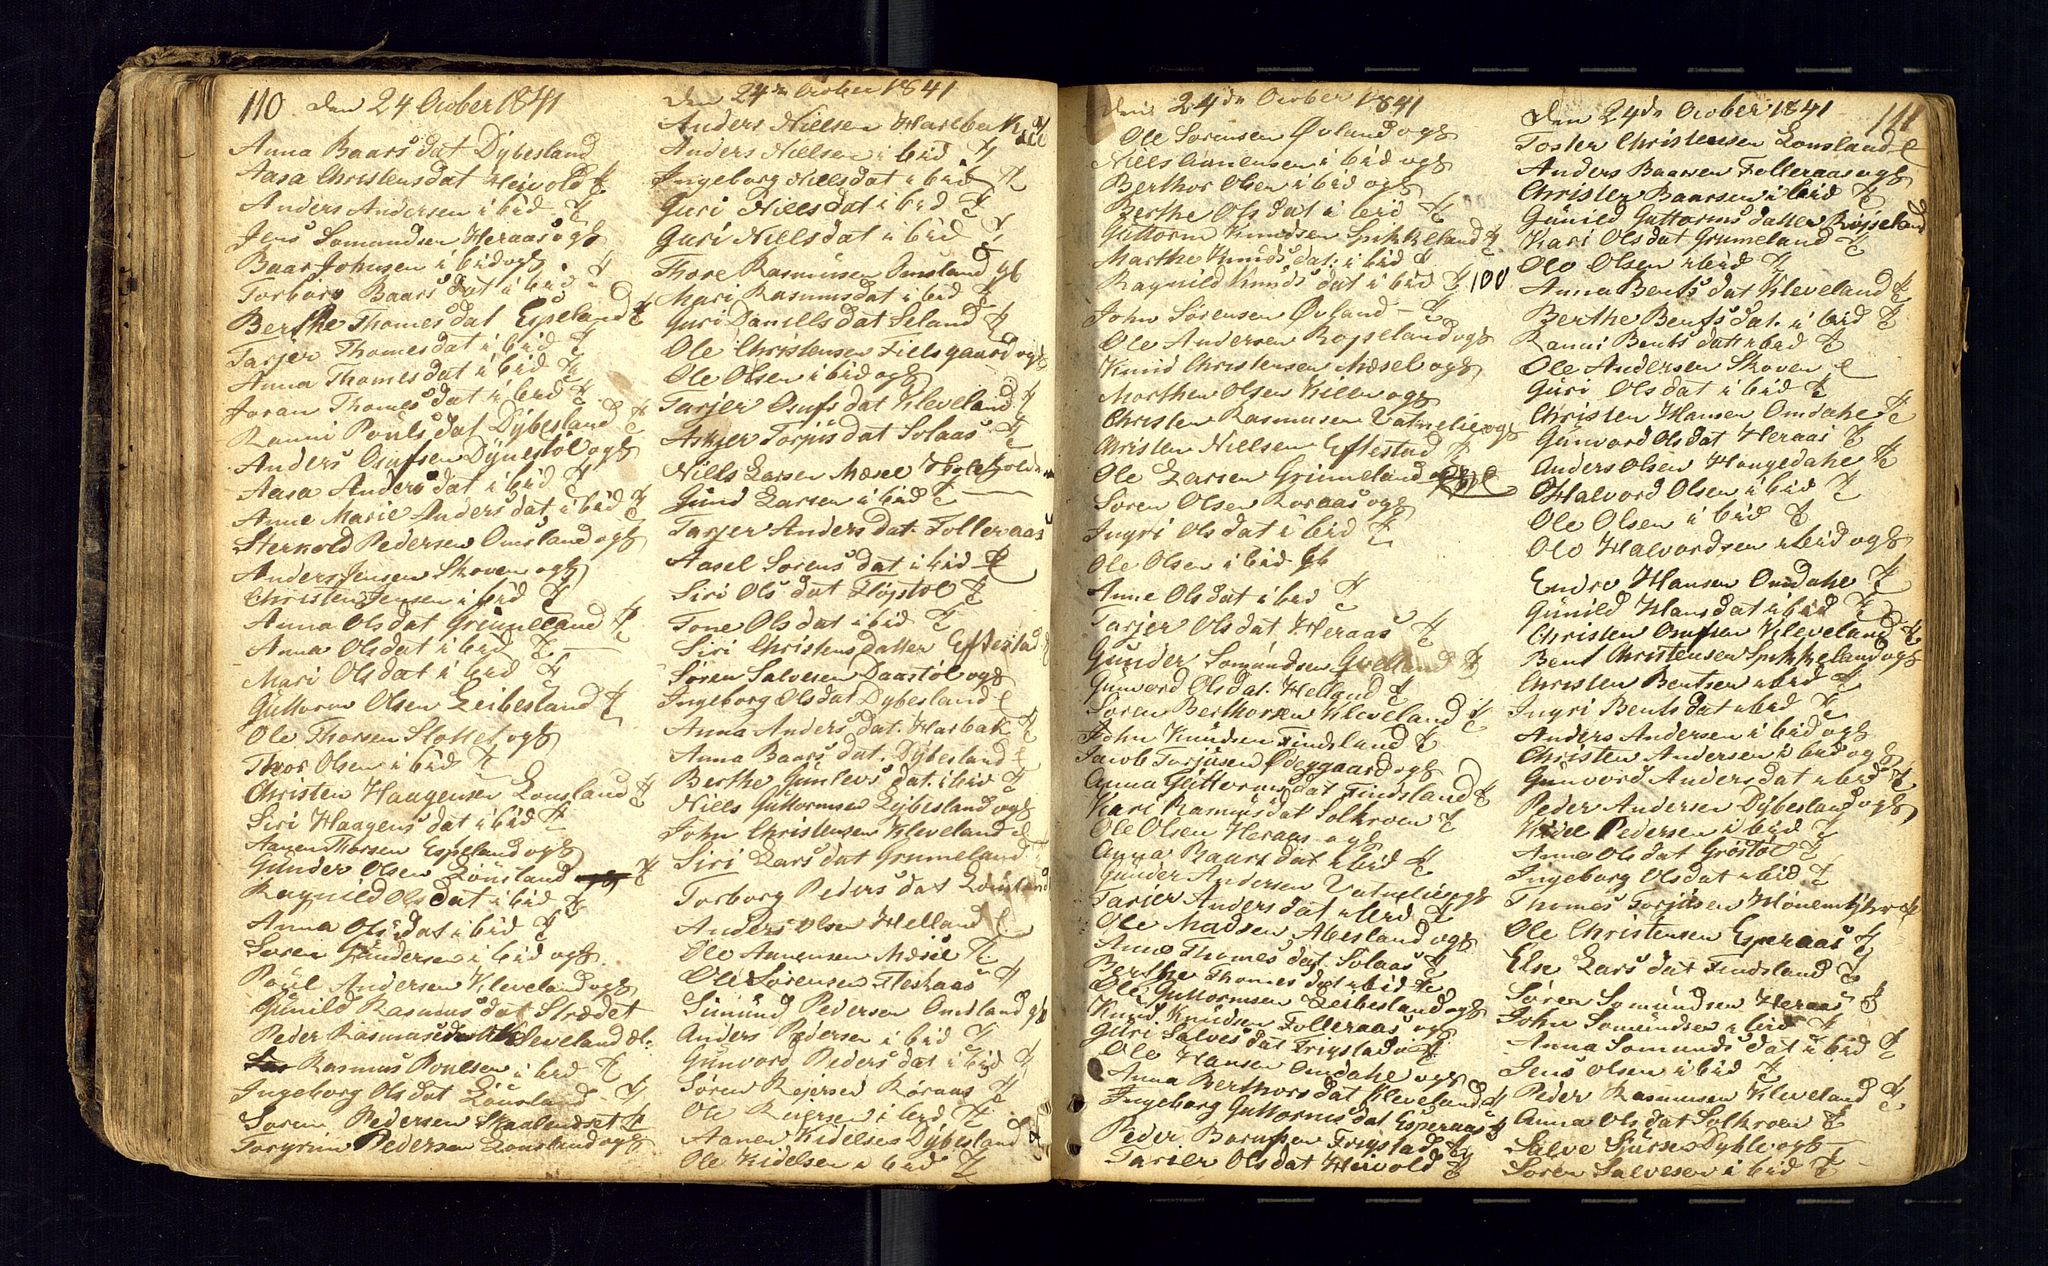 110 den 24 Octber 1841
Anna Baars dat Dybesland
Aasa Christens dat Heivold
Anders Andersen i bid
Jens Somundsen Heraas og
Baar Johnsen i bid og
Torbor Baars dat i bid
Berthe Thomes dat Espeland
Tarjer Thomes dat i bid
Anna Thomes dat i bid
Joran Thomes dat i bid
Ranni Pouls dat Dybesland
Anders Osufsen Dÿnestöl og
Aasa Anders dat i bid
Anne Marie Anders dat i bid
Herkold Pedersen Omsland og
Anders Jensen Skoven og
Christen Jensen i bid
Anna Olsdat Grimeland
Anna Olsdat i bid
Mari Olsdat i bid
Guttorm Olsen Leibesland
Ole Thorsen Slottet og
Thor Olsen i bid
Christen Haagensen Lonsland
Siri Haagens dat i bid
Aanen Thorsen Espeland og
Gunder Olsen Lonsland
Ragnild Ols dat i bid
Anna Olsdat i bid
Soren Gundersen i bid og
Poul Andersen Kleveland og
Gunild Rasmus dat Strædet
Peder Rasmusen Kleveland
Rasmus Poulsen i bid
Ingeborg Olsdat Lonsland
Soren Pedersen Skaalandset
Torgrim Pedersen Lonsland og
den 24de Octber 1841
Anders Nielsen Harebak
Anders Nielsen i bid
Ingeborg Niels dat i bid
Guri Niels dat i bid
Guri Niels dat i bid
Thore Rasmusen Omsland
Mari Rasmusdat i bid
Guri Daniells dat Seland
Ole Christensen Fielsgaard og
Ole Olsen i bid og
Tarjer Osufs dat Kleveland
Askjer Torjus dat Solaas
Niels Larsen Mæsel
Gund Larsen i bid
Tarjer Anders dat Folleraas
Aasel Sorens dat i bid
Siri Ols dat Flojstöl
Tone Olsdat i bid
Siri Christens datter Eftestad
Søren Salvesen Daastöl og
Ingeborg Olsdat Dybesland
Anna Anders dat Harbak
Anna Baars dat Dybesland
Berthe Gunlevs dat i bid
Niels Guttormsen Lejbesland og
John Christensen Kleveland
Siri Lars dat Grimeland
Torborg Peders dat Lonsland
Anders Olsen Helland
Ole Aanensen Mæsel
Ole Sörensen Fleskaas
Simund Pedersen Omsland
Anders Pedersen i bid
Gunvord Peders dat i bid
Søren Rejersen Röraas
Ole Rejersen i bid
Aanen Kidelsen Dybesland
Ole Kidelsen i bid
den 24de Octber 1841
Ole Sorensen Øvland og
Niels Aanensen i bid og
Berthor Olsen i bid og
Berthe Ols dat i bid
Guttorm Knudsen Spikkeland
Marthe Knuds dat i bid
Ragnild Knuds dat i bid 100
John Sörensen Øvland
Ole Andersen Rosseland og
Knud Christensen Mæsel og
Morthen Olsen Killen og
Christen Rasmusen Vatnelie og
Christen Nielsen Eftestad
Ole Larsen Grimeland
Soren Olsen Roraas og
Ingri Olsdat i bid
Ole Olsen i bid
Anne Olsdat i bid
Tarjer Ols dat Heraas
Gunder Somundsen
Gunvord Olsdat Helland
Soren Berthorsen Kleveland
John Knudsen Findsland
Jacob Torjusen Ødegaard og
Anna Guttorms dat Findsland
Kari Rasmus dat Solkroen
Ole Olsen Heraas og
Anna Baars dat i bid
Gunder Andersen Vatnelie og
Tarjer Anders dat i bid
Ole Madsen Abesland og
Anne Thomes dat Solaas
Berthe Thomes dat i bid
Ole Guttormsen Leibesland og
Knud Knudsen Folleraas og
Guri Salves dat Frigstad
Ole Hansen Omdahl og
Anna Berthors dat Kleveland
Ingeborg Guttorms dat Esperaas
Peder Frigstad
Tarjer Olsdat Hervold
den 24de Octber 1841 111
Toster Christensen Lonsland
Anders Baarsen Folleraas og
Christen Baarsen i bid
Gunild Guttorms datter Rosseland
Kari Ols dat Grimeland
Ole Olsen i bid
Anna Bents dat Kleveland
Berthe Bents dat i bid
Ranni Bents dat i bid
Ole Andersen Skoven
Guri Olsdat i bid
Christen Hansen Omdahl
Gunvord Olsdat Heraas
Anders Olsen Haugedahl
Halvord Olsen i bid
Ole Olsen i bid
Ole Halvordsen i bid og
Endre Hansen Omdahl
Gunild Hans dat i bid
Christen Osufsen Kleveland
Bent Christensen Spikkeland og
Christen Bentsen i bid
Ingri Bents dat i bid
Anders Andersen i bid og
Christen Andersen i bid og
Gunvord Anders dat i bid
Peder Andersen Dybesland og
Kidel Pedersen i bid
Anne Olsdat Grostöl
Ingeborg Olsdat i bid
Thomes Torjusen
Ole Christensen Esperaas
Else Lars dat Findsland
Søren Somundsen Heraas
John Somundsen i bid
Anna Somunds dat i bid
Jens Olsen i bid
Peder Rasmusen Kleveland
Anna Olsdat Solkroen
Salve Sjursen Dyble og
Soren Salvesen i bid